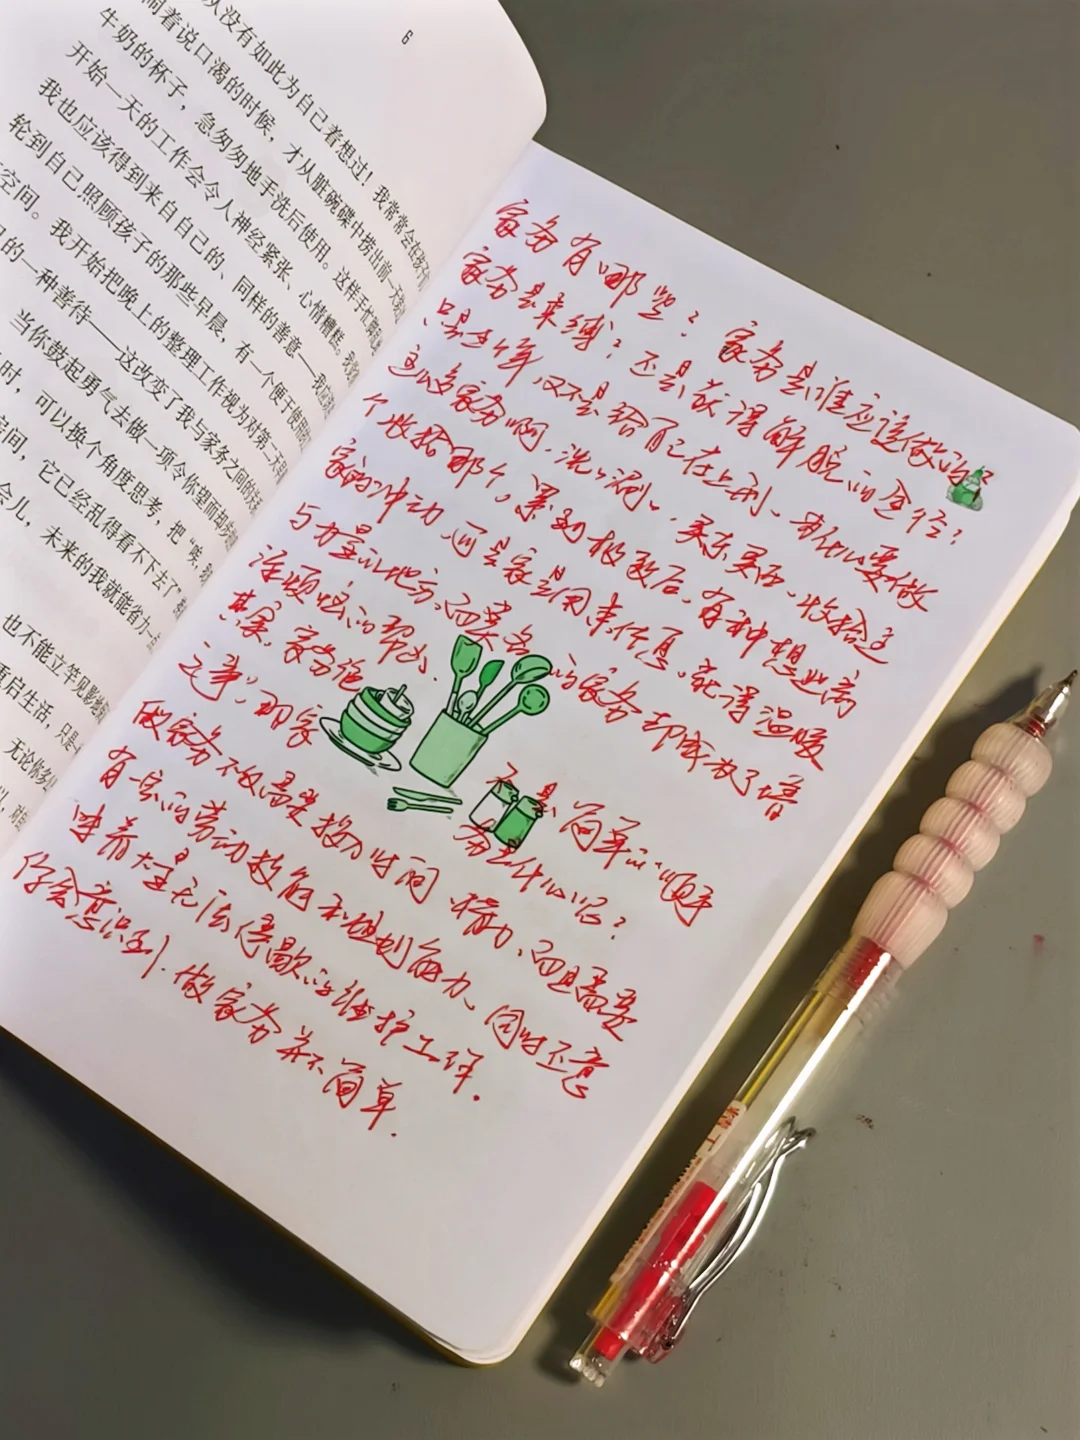 6
从没有如此为自己着想过！我常常会在孩子
闹着说口渴的时候，才从脏碗碟中捞出前一天
牛奶的杯子，急匆匆地手洗后使用。这样手忙脚乱
开始一天的工作会令人神经紧张、心情糟糕。
我也应该得到来自自己的、同样的善意——我
轮到自己照顾孩子的那些早晨，有一个便于使用
空间。我开始把晚上的整理工作视为对第二天
的一种善待——这改变了我与家务之间的关系
当你鼓起勇气去做一项令你望而却步
时，可以换个角度思考，把“唉，我
房间，它已经乱得看不下去了”
会儿，未来的我就能省力一点
也不能立竿见影地
重启生活，只是
无论你多
以，对自
家务有哪些？家务是谁应该做的？
家务是束缚？还是获得解脱的途径？
只是五年，仅不是给自己在上刑、为什么要做
这么多家务啊，洗洗涮涮，买东买西，收拾这
个收拾那个。累到极致后，有种想逃离
家的冲动，而是家是用来休息，获得温暖
与力量的地方，而莫名的家务却成为了增
添烦恼的帮凶。
其实，家务绝不是简单的“顺手
之事”，那家务是什么呢？
做家务不仅需要投入时间、精力，而且需要
有一定的劳动技能和规划能力、同时还意
味着大量无法停歇的维护工作。
你会意识到，做家务并不简单。